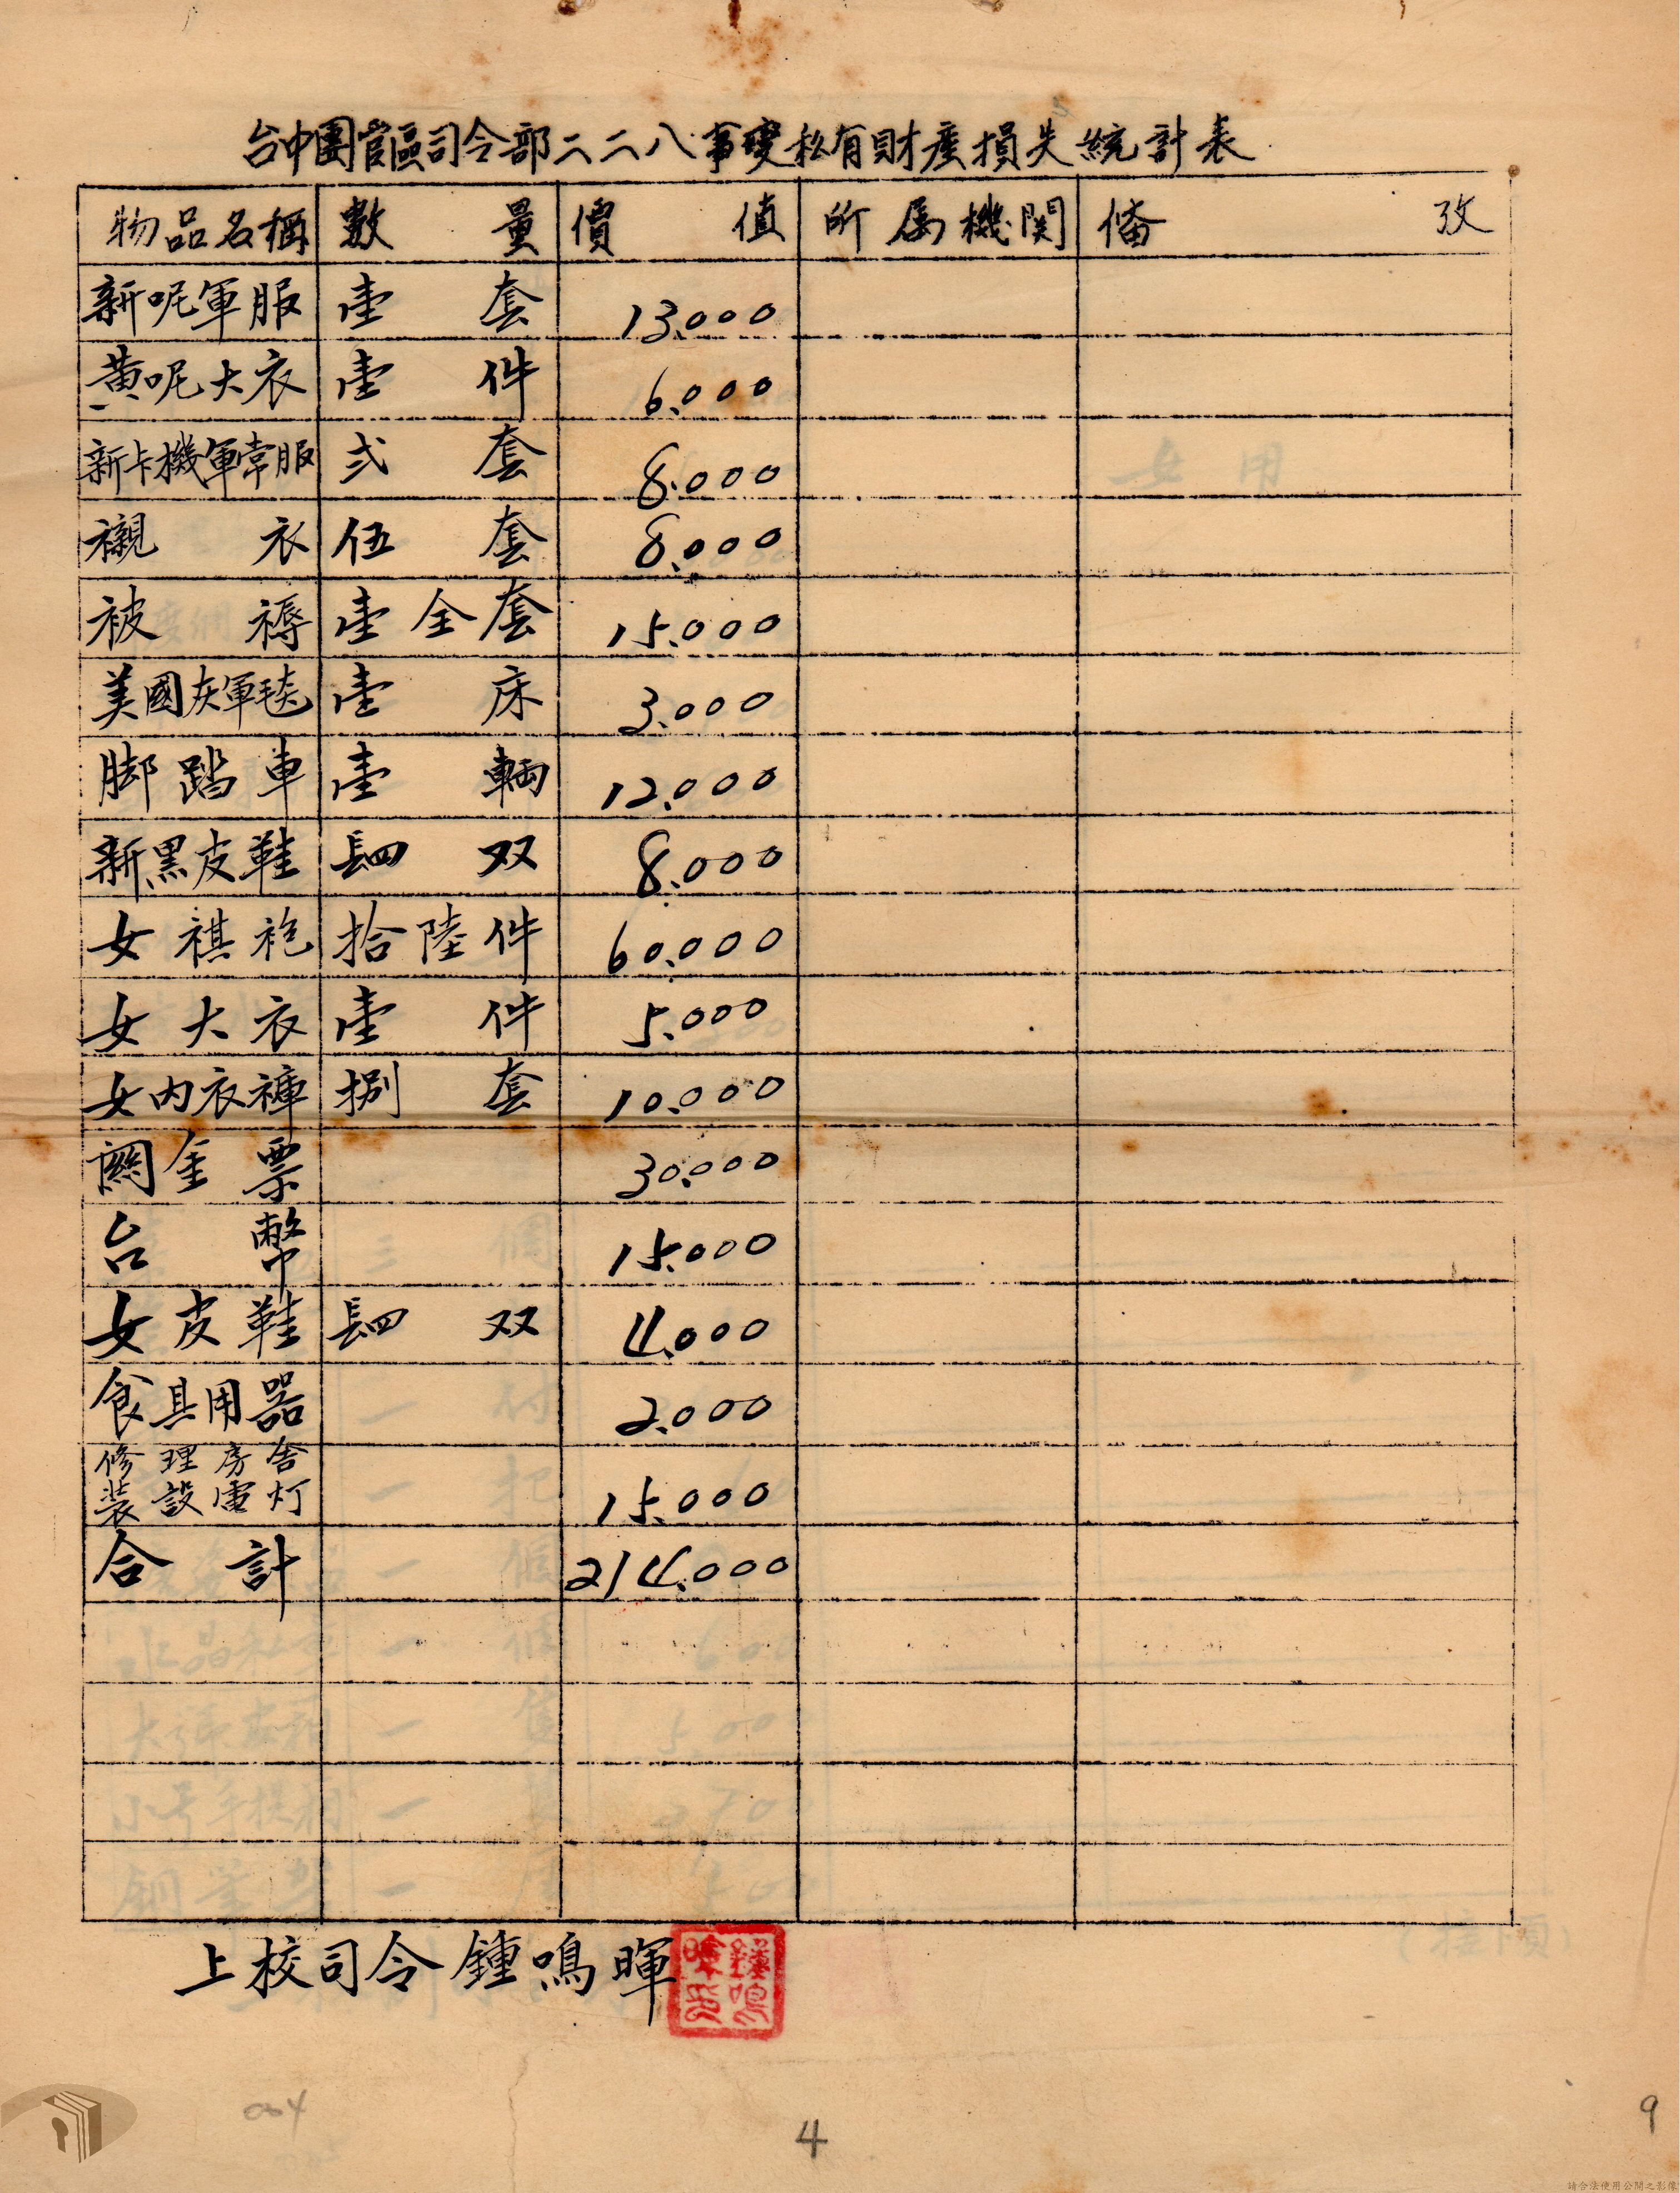 台中團管區司令部二二八事變私有財產損失統計表
物品名稱 數量 價值 所属機関 俻攷
新呢軍服 壹套 13.000
黄呢大衣 壹件 6.000
新卡機軍常服 弍套 8.000
襯衣 伍套 8.000
被褥 壹全套 15.000
美國灰軍毯 壹床 3.000
脚踏車 壹輌 12.000
新黑皮鞋 肆双 8.000
女祺袍 拾陸件 60.000
女大衣 壹件 5.000
女内衣褲 捌套 10.000
関金票 30.000
台幣 15.000
女皮鞋 肆双 4.000
食具用器 2.000
修理房舍
装設電灯 15.000
合計 214.000
上校司令鍾鳴暉
004
4
9
請合法使用公開之影像